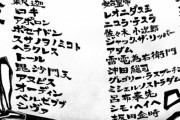 釈迦
ロキ
アポロン
ポセイドン
スサノヲノミコト
ヘラクレス
トール
毘沙門天
アヌビス
オーディン
ベルゼブブ
レオニダス王
ニコラ・テスラ
佐々木小次郎
ジャック・ザ・リッパー
アダム
雷電為右衛門
沖田総司
グレゴリー・ラスプーチン
呂布奉先
シモ・ヘイヘ
坂田金時